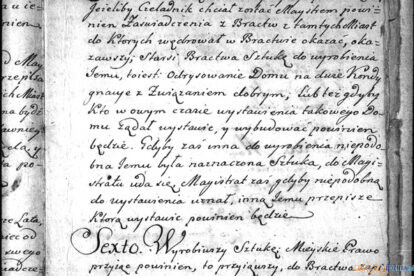 Jeżeliby Czeladnik chciał zostać Maystrem powi-
nien Zaświadczenia z Bractw z tamtych Miast
do których wędrował w Bractwie okazać, oka-
zawszy; Starsi Bractwa Sztukę do wyrobienia
Jemu, to iest: Odrysowanie Domu na dwie Kondy-
gnacye z Związaniem dobrym; Lub też gdyby
Kto w owym czasie wystawienia takowego Do-
mu żądał wystawić, y wybudować powinien
będzie. Gdyby zaś inna do wyrobienia niepodo-
bna Jemu była naznaczona Sztuka, do Magi-
stratu uda się, Magistrat zaś gdyby niepodobną
do wystawienia uznał, inną Jemu przepisze
którą wystawić powinien będzie
Sexto. Wyrobiwszy Sztukę Mieyskie Prawo
przyiąć powinien, to przyiąwszy, do Bractwa zapi